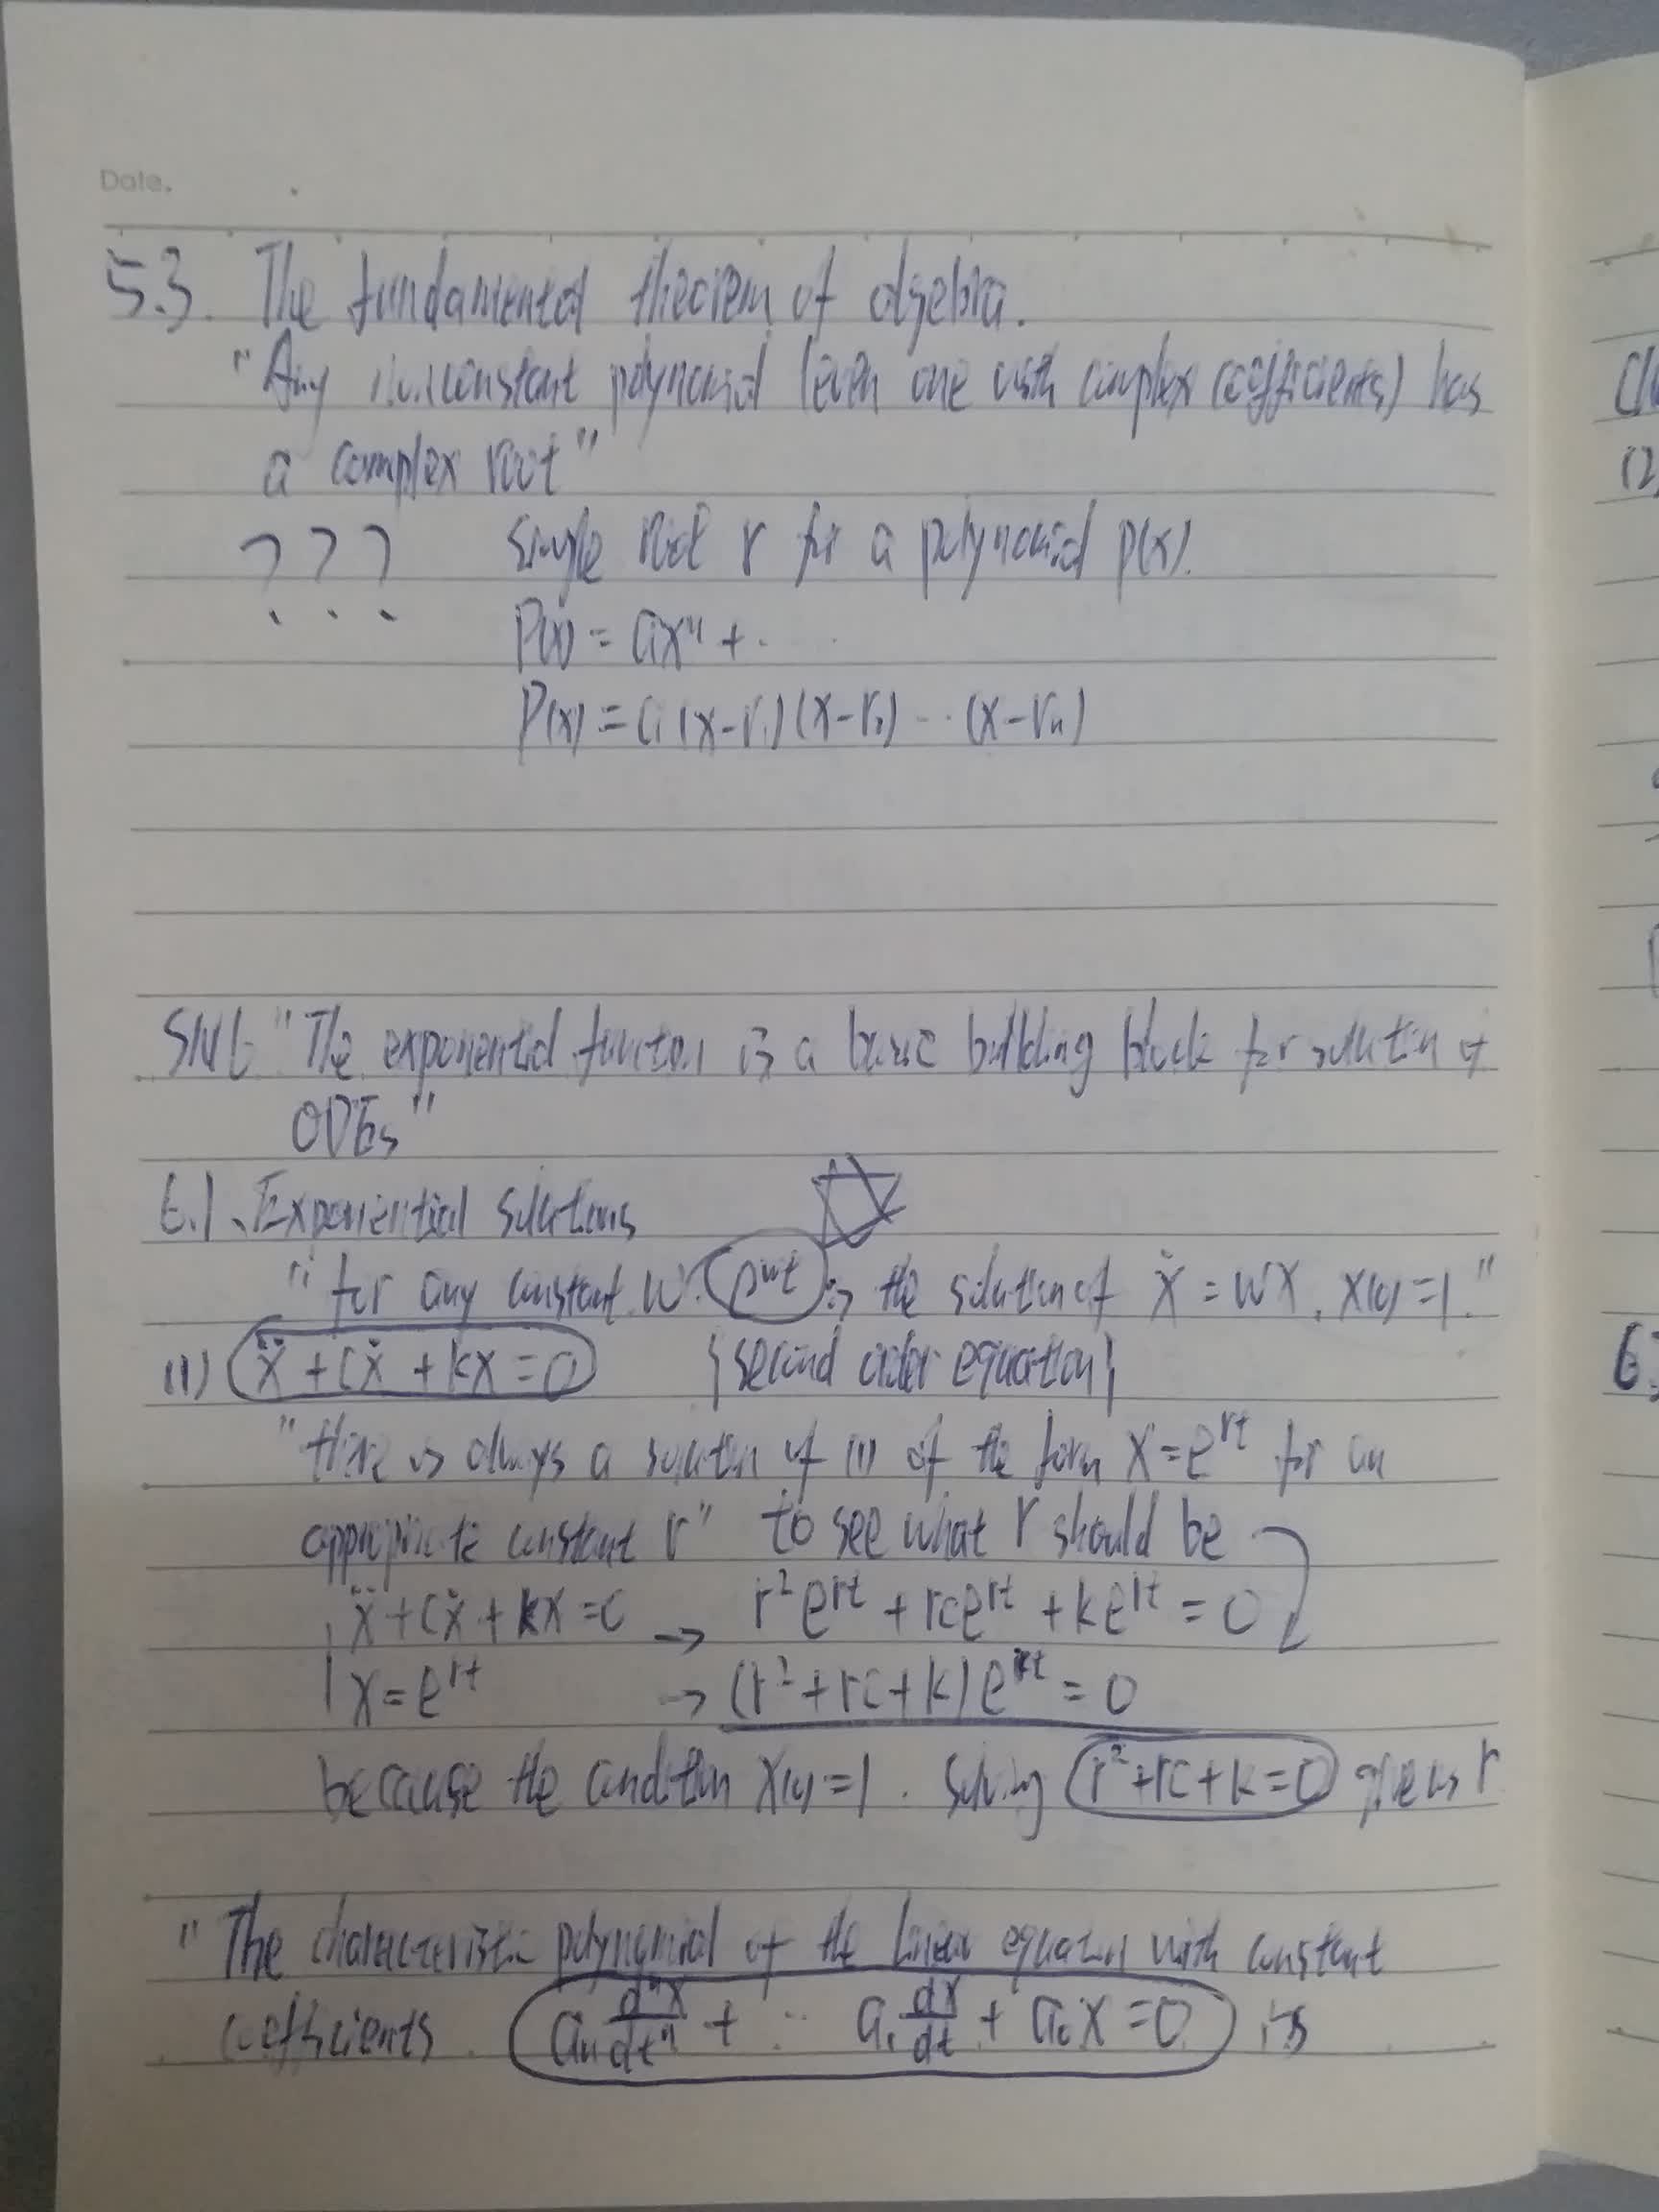 Date.
5.3. The fundamental theorem of algebra.
"Any nonconstant polynomial (even one with complex coefficients) has
a complex root"
? ? ? Simple root r for a polynomial p(x).
P(x) = axⁿ + ...
P(x) = a(x-r₁)(x-r₂) ... (x-rₙ)
SN6 "The exponential function is a basic building block for solution of
ODEs"
6.1. Exponential solutions
"for any constant w. e^{wt} is the solution of ẋ = wx, x(0)=1."
(1) ẍ + cẋ + kx = 0 {second order equation}
"there is always a solution of (1) of the form x = e^{rt} for an
appropriate constant r" to see what r should be
ẍ + cẋ + kx = 0 → r²e^{rt} + rce^{rt} + ke^{rt} = 0
x = e^{rt} → (r² + rc + k)e^{rt} = 0
because the condition x(0)=1. Solving r² + rc + k = 0 gives r
"The characteristic polynomial of the linear equation with constant
coefficients. aₙ dⁿx/dtⁿ + ... a₁ dx/dt + a₀x = 0 is
(2
6.